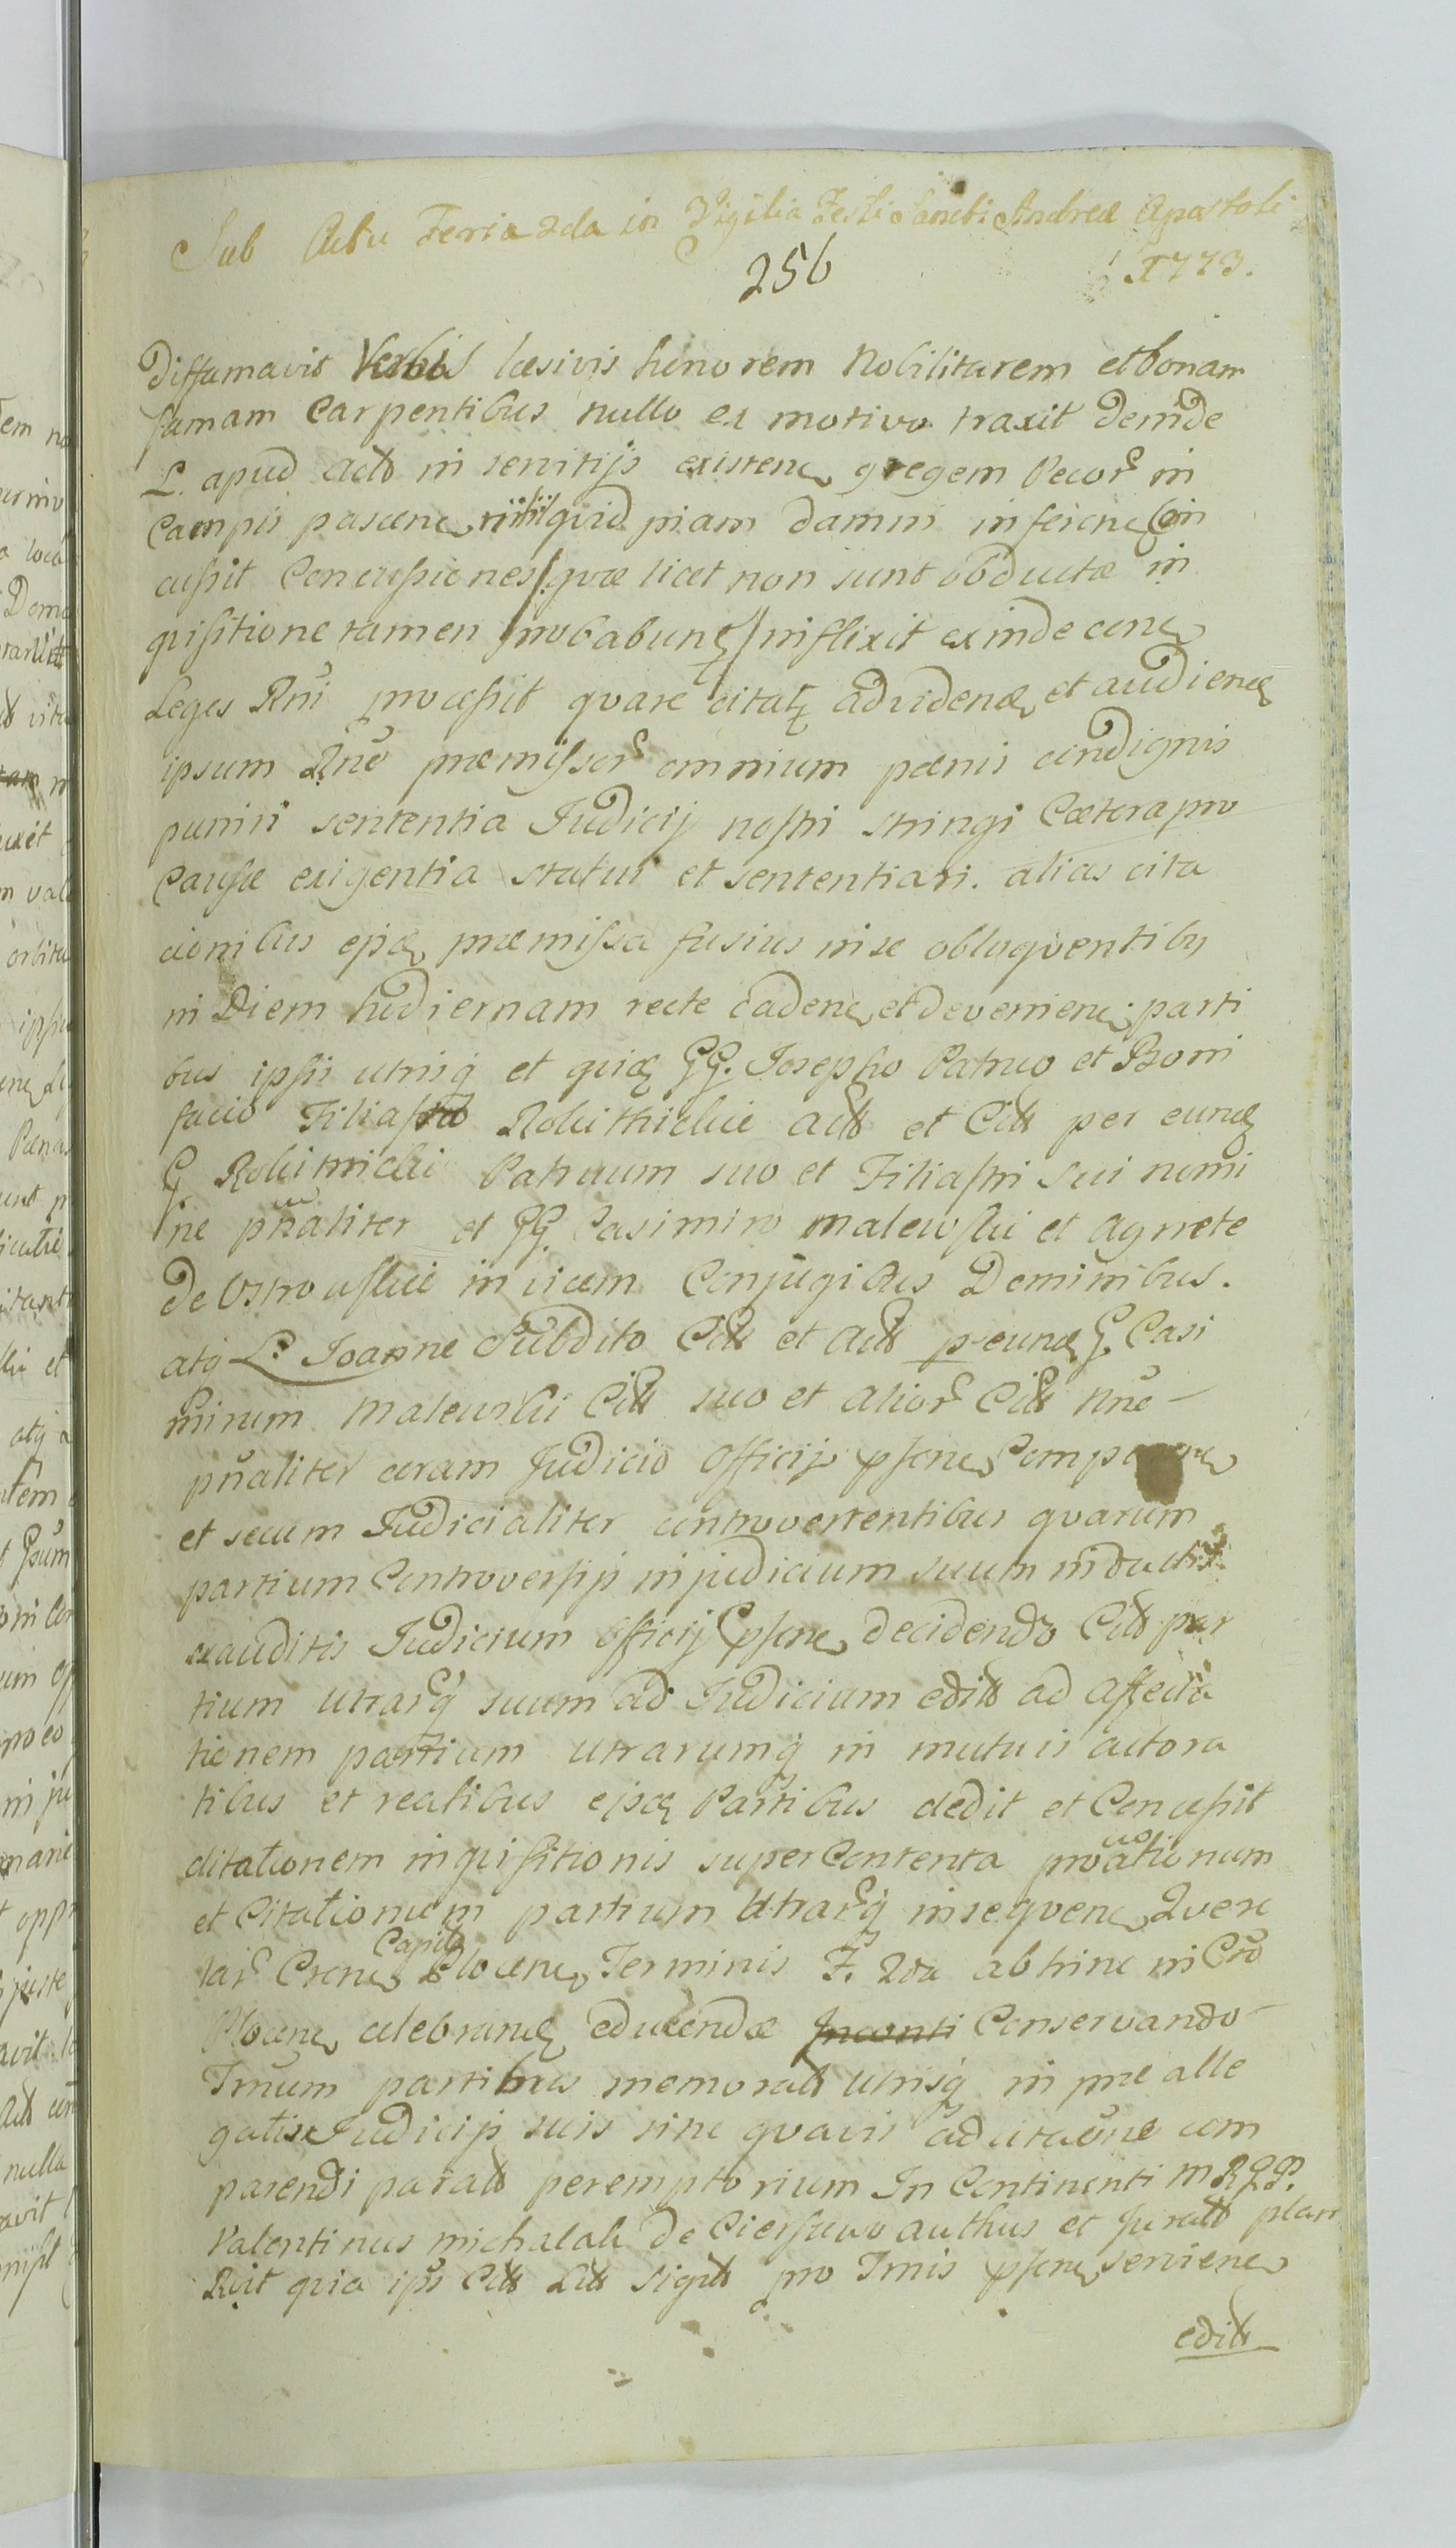 Sub Actu Feria 2da in Vigilia Festi Sancti Andreæ Apostoli
1773.
256
Diffamavit Verbis læsivis honorem Nobilitarem et bonam
famam Carpentibus nullo ex motivo traxit deinde
L. apud Acto in servitijs existene gregem Pecor in
Campis pascene nihil quid piam damni inferene Con
cussit Concussiones /: quæ licet non sunt obductæ in
quisitione tamen probabunt :/ inflixit exinde cont
Leges Rni processit quare citat ad vidend et audiend
ipsum Rne præmissor omnium pœnis condignis
puniri sententia Judicij nostri stringi Cætera pro
Causæ exigentia statui et sententiari. alias cita
cionibus ejsd præmissa fusius in se obloquentiby
in Diem hodiernam recte cadene et deveniene parti
bus ipsis utrisq et quid GG. Josepho Patruo et Boni
facio Filiastro Rokithickie Acto et Cito per eund
G. Rokitnicki Patruum suo et Filiastri sui nomi
ne pnaliter et GG. Casimiro Malewski et Agnete
de Ostrowskie invicem Conjugibus Dominibus.
atq L. Joanne Subdito Cito et Acto p eund G. Casi
mirum Malewski Cito suo et alior Cito nne
pnaliter coram Judicio Officij psene Comparene
et secum Judicialiter controvertentibus quarum
partium Controversijs in judicium suum inductis
exauditis Judicium officij psene decidendo Cito par
tium utrarq suum ad Judicium edito ad affecta
tionem partium utrarumq in mutuis actora
tibus et reatibus ejsd Partibus dedit et Concessit
ditationem inquisitionis super Contenta proationum
et Citationum partium Utrarq insequene Quere
lar Crene Capit Plocene Terminis F. 2da abhinc in Cro
Plocene celebrand educendæ Inconti Conservando
Tnum partibus memorato utrisq in præ alle
gatis Judicijs suis sine quavis adcitaone com
parendi parato peremptorium In Continenti M R G P.
Valentinus Michalak de Ciersewo authus et Jurato plan
Rvit quia ips Cito Lit Sigto pro Tnis psene serviene
edito